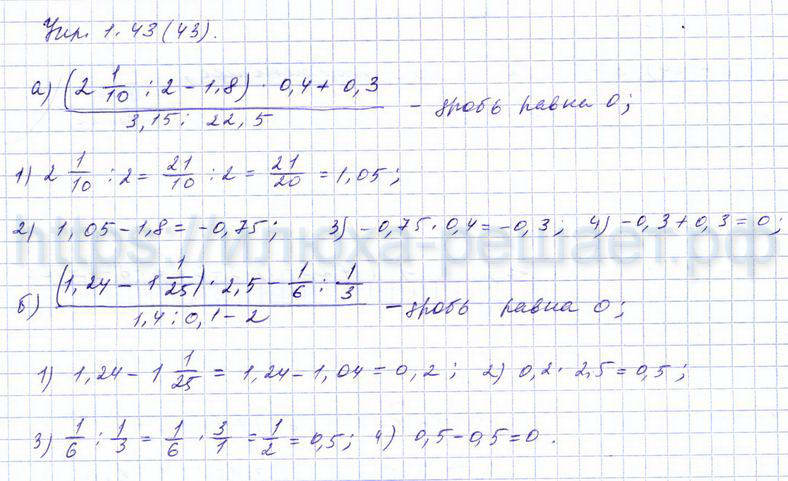 Упр. 1.43(43).
а) ((2 1/10 : 2 - 1,8) · 0,4 + 0,3) / (3,15 : 22,5) - дробь равна 0;
1) 2 1/10 : 2 = 21/10 : 2 = 21/20 = 1,05;
2) 1,05 - 1,8 = -0,75; 3) -0,75 · 0,4 = -0,3; 4) -0,3 + 0,3 = 0;
б) ((1,24 - 1 1/25) · 2,5 - 1/6 : 1/3) / (1,4 : 0,1 - 2) - дробь равна 0;
1) 1,24 - 1 1/25 = 1,24 - 1,04 = 0,2; 2) 0,2 · 2,5 = 0,5;
3) 1/6 : 1/3 = 1/6 · 3/1 = 1/2 = 0,5; 4) 0,5 - 0,5 = 0.